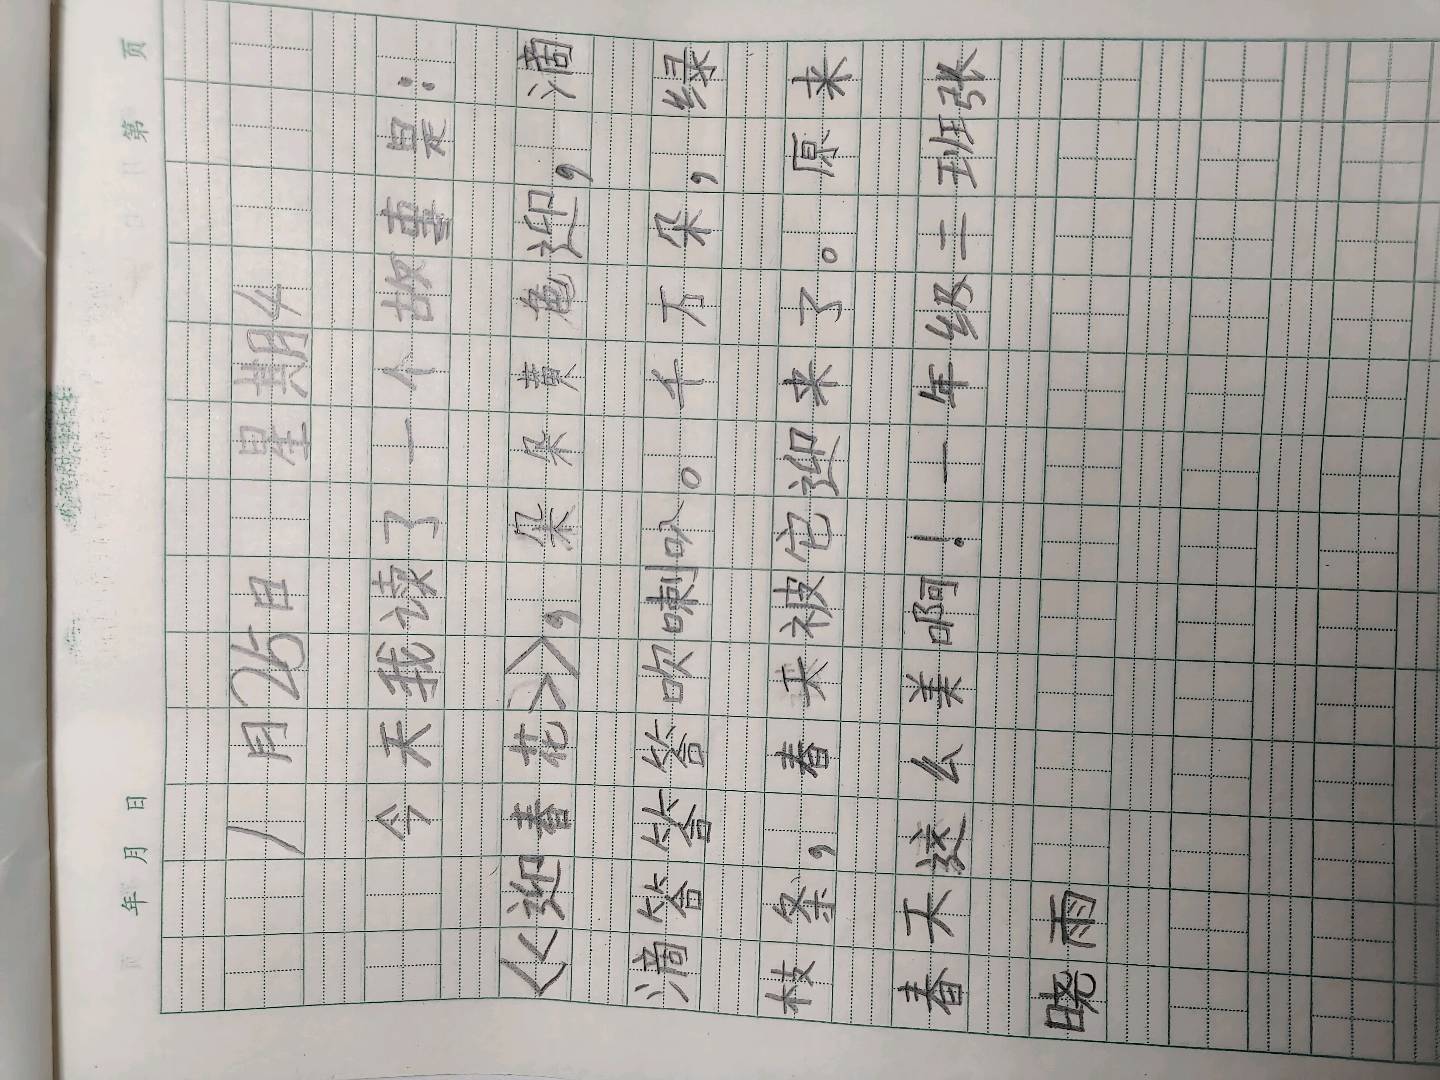 年 月 日 第 页
1月26日 星期4
今天我读了一个故事是：
《迎春花》，朵朵黄龟迎，滴
滴答答答吹喇叭。千万朵，绿
枝条，春天被它迎来了。原来
春天这么美啊！一年级二班张
晓雨